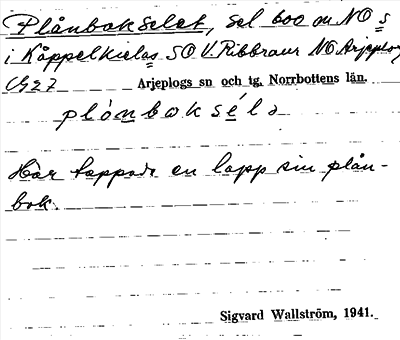 Plånbokselet, sel 600 m NO s
i Kåppelkielas SO V. Ribbraur NO Arjeplog
Arjeplogs sn och tg, Norrbottens län.
plånboksélə
Här tappade en lapp sin plån-
bok.
Sigvard Wallström, 1941.